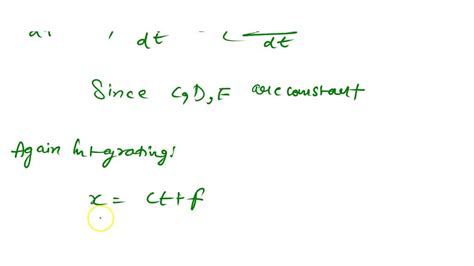 dt dt
Since C, D, E are constant
Again Integrating:
x = ct + f